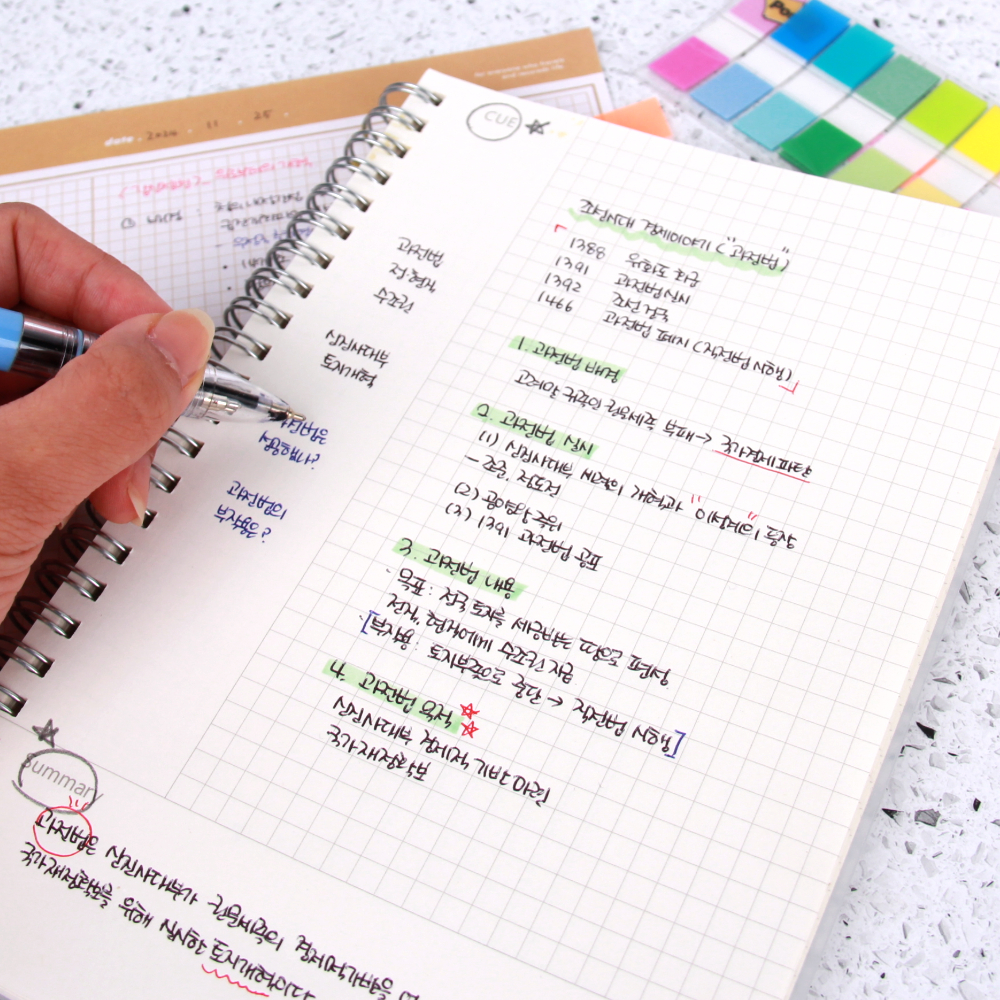 date. 2024 . 11 . 25 .
CUE
과전법
정현직
수조권
신진사대부
토지개혁
시행했나?
과전법의
부작용은?
조선시대 경제이야기 ("과전법")
1388 위화도 회군
1391 과전법 실시
1392 조선 건국
1466 과전법 폐지 (직전법 시행)
1. 과전법 배경
고려말 귀족인 권문세족 부패→ 국가경제파탄
2. 과전법 실시
(1) 신진사대부 세력의 개혁과 "이성계"의 등장
- 조준, 정도전
(2) 공양왕 즉위
(3) 1391 과전법 공포
3. 과전법 내용
· 목표 : 전국 토지를
전지, 현직자에게 수조권 지급
[부작용 : 토지부족으로 중단 → 직전법 시행]
4. 과전법 목적
신진사대부 경제적 기반 마련
국가재정확보
Summary
과전법은 신진사대부가 권문세족의 경제적기반을
국가재정확보를 위해 실시한 토지개혁이다
Post